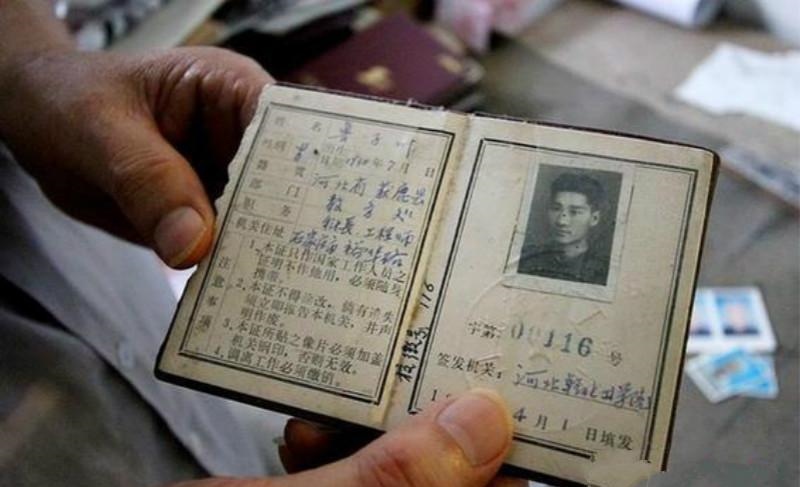 姓名
性别 男 出生日期 年7月 日
籍贯 河北省获鹿县
部门 教务处
职务 科长 工程师
机关住址 石家庄市裕华路
注意事项
1.本证只作国家工作人员之
证明不作他用,必须随身
携带。
2.本证不得涂改,倘有遗失
须立即报告本机关,并声
明作废。
3.本证所贴之像片必须加盖
机关钢印,否则无效。
4.调离工作必须缴销。
校徽号 116
字第 00116 号
签发机关:河北
4月1日填发